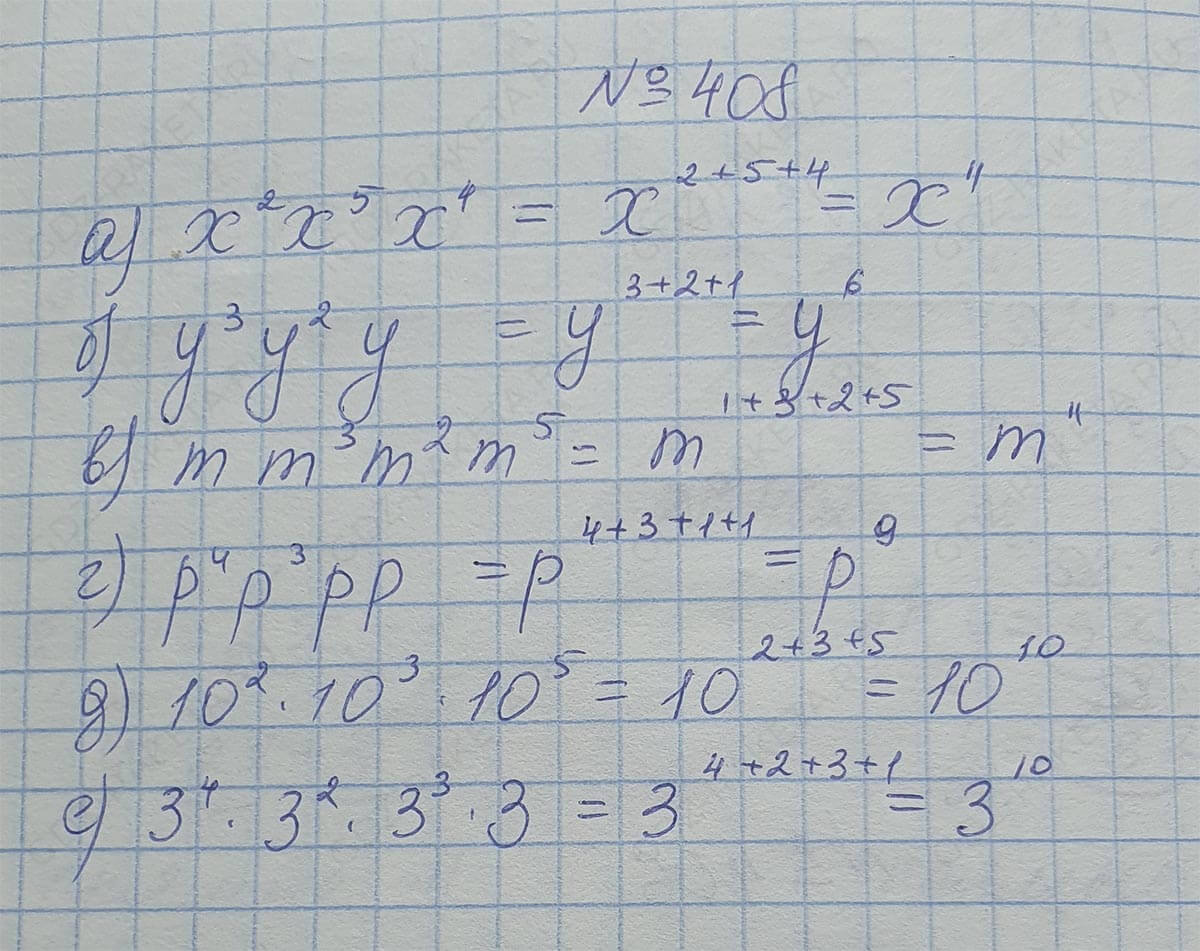 № 408
а) x²x⁵x⁴ = x²⁺⁵⁺⁴ = x¹¹
б) y³y²y = y³⁺²⁺¹ = y⁶
в) m m³m²m⁵ = m¹⁺³⁺²⁺⁵ = m¹¹
г) p⁴p³pp = p⁴⁺³⁺¹⁺¹ = p⁹
д) 10² · 10³ · 10⁵ = 10²⁺³⁺⁵ = 10¹⁰
е) 3⁴ · 3² · 3³ · 3 = 3⁴⁺²⁺³⁺¹ = 3¹⁰